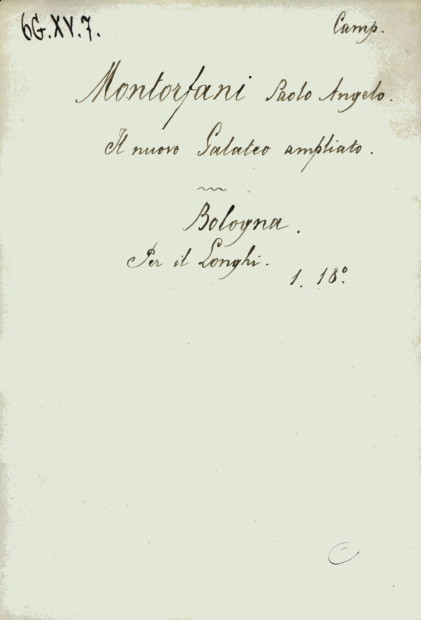 6G.XV.7.
Camp.
Montorfani Paolo Angelo.
Il nuovo Galateo ampliato.
Bologna.
Per il Longhi.
1. 18°.